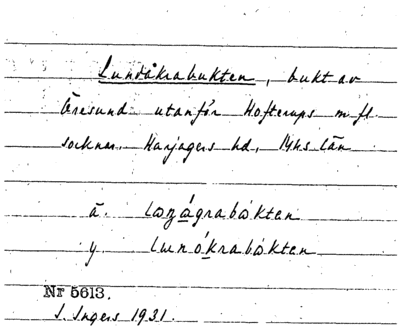 Lundåkrabukten, bukt av
Öresund utanför Hofterups m fl
socknar. Harjagers hd, Mhs län
ä. loŋágrabåkten
y. lunókrabåkten
Nr 5613.
I. Ingers 1931.